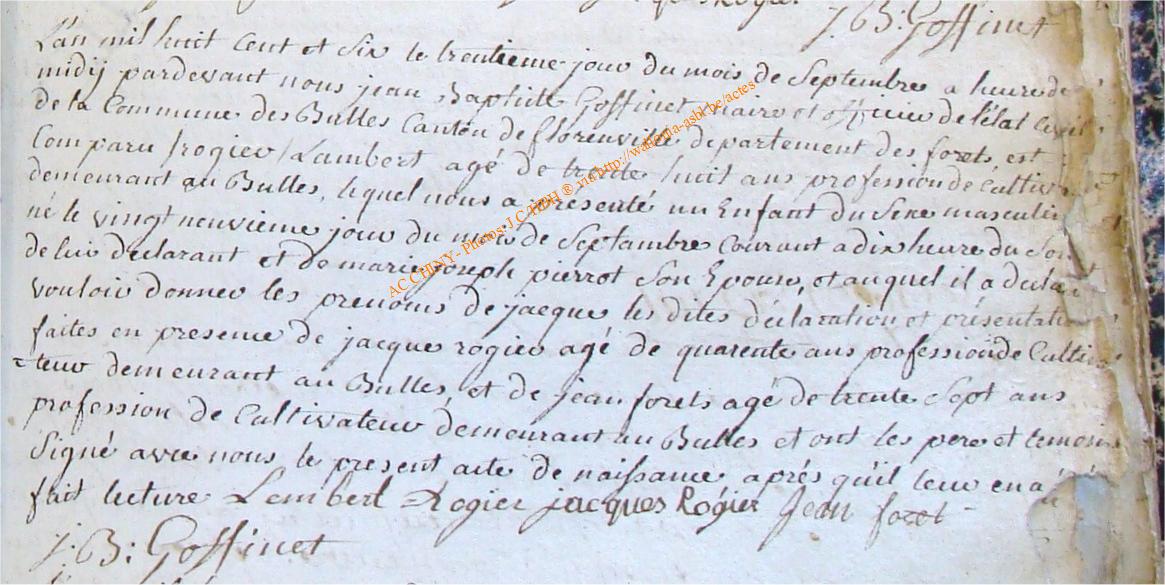 J.B: Goffinet
L'an mil huit cent et six le trentieme jour du mois de Septembre a heure de
midij pardevant nous jean Baptiste Goffinet maire et officier de l'état civil
de la Commune des Bulles Canton de florenville departement des forets, est
Comparu /rogier/ Lambert agé de trente huit ans profession de Cultiv
demeurant au Bulles, lequel nous a présenté un Enfant du Sexe masculin
né le vingt neuvieme jour du mois de Septembre Courant a dix heure du Soir
de lui declarant et de marie joseph pierrot Son Epouse, et auquel il a déclaré
vouloir donner les prenoms de jacque les dites déclaration et présentatio
faites en presence de jacque rogier agé de quarente ans profession de Cultiva
=teur demeurant au Bulles, et de jean forets agé de trente Sept ans
profession de Cultivateur demeurant au Bulles et ont les pere et temoins
Signé avec nous le present acte de naissance aprés qu'il leur en a été
fait lecture Lembert Rogier jacques Rogier Jean foret
J:B: Goffinet
AC CHINY - Photos J.C TIBH ® via http://wallonia-asbl.be/actes